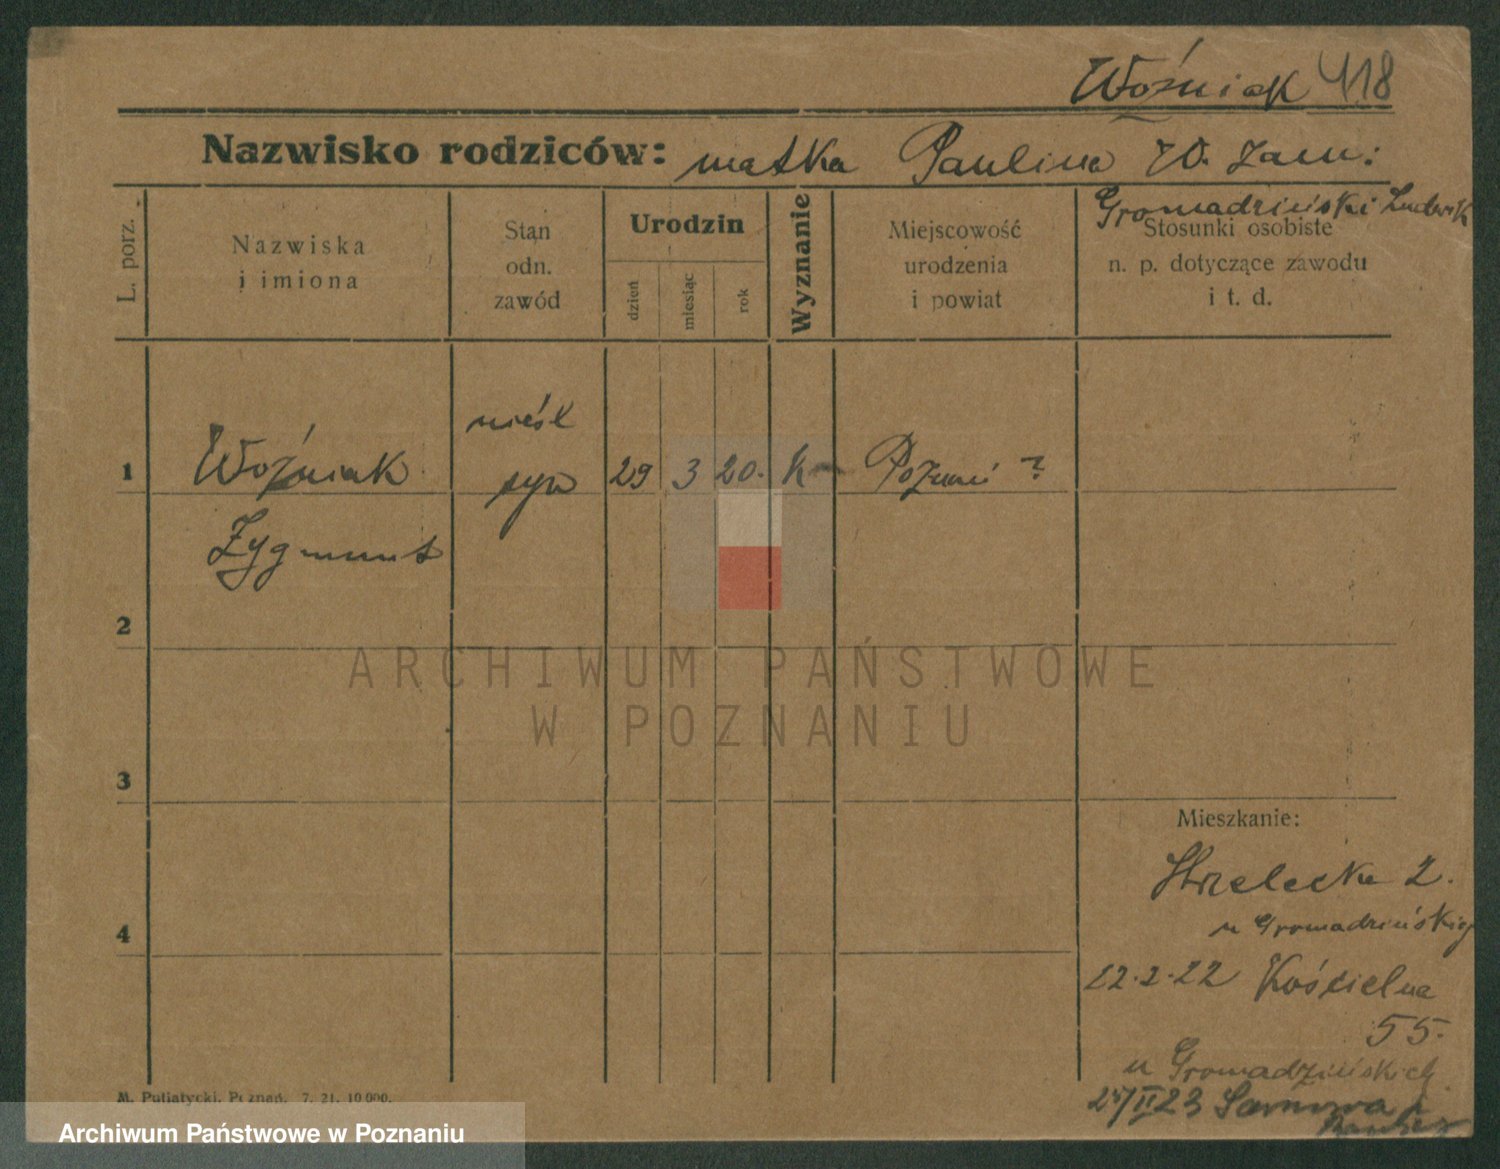 Woźniak 418
Nazwisko rodziców: matka Paulina W. zam:
Gromadziński Ludwik
L. porz.
Nazwiska
i imiona
Stan
odn.
zawód
Urodzin
dzień
miesiąc
rok
Wyznanie
Miejscowość
urodzenia
i powiat
Stosunki osobiste
n. p. dotyczące zawodu
i t. d.
nieśl
1 Woźniak syn 29 3 20. k Poznań ?
Zygmunt
2
ARCHIWUM PAŃSTWOWE
W POZNANIU
3
Mieszkanie:
Strzelecka 2.
4
u Gromadzińskiej
22.2.22 Kościelna
55.
u Gromadzińskich
25/II 23 Sarnowa p
M. Putiatycki, Poznań. 7. 21. 10 000.
Archiwum Państwowe w Poznaniu